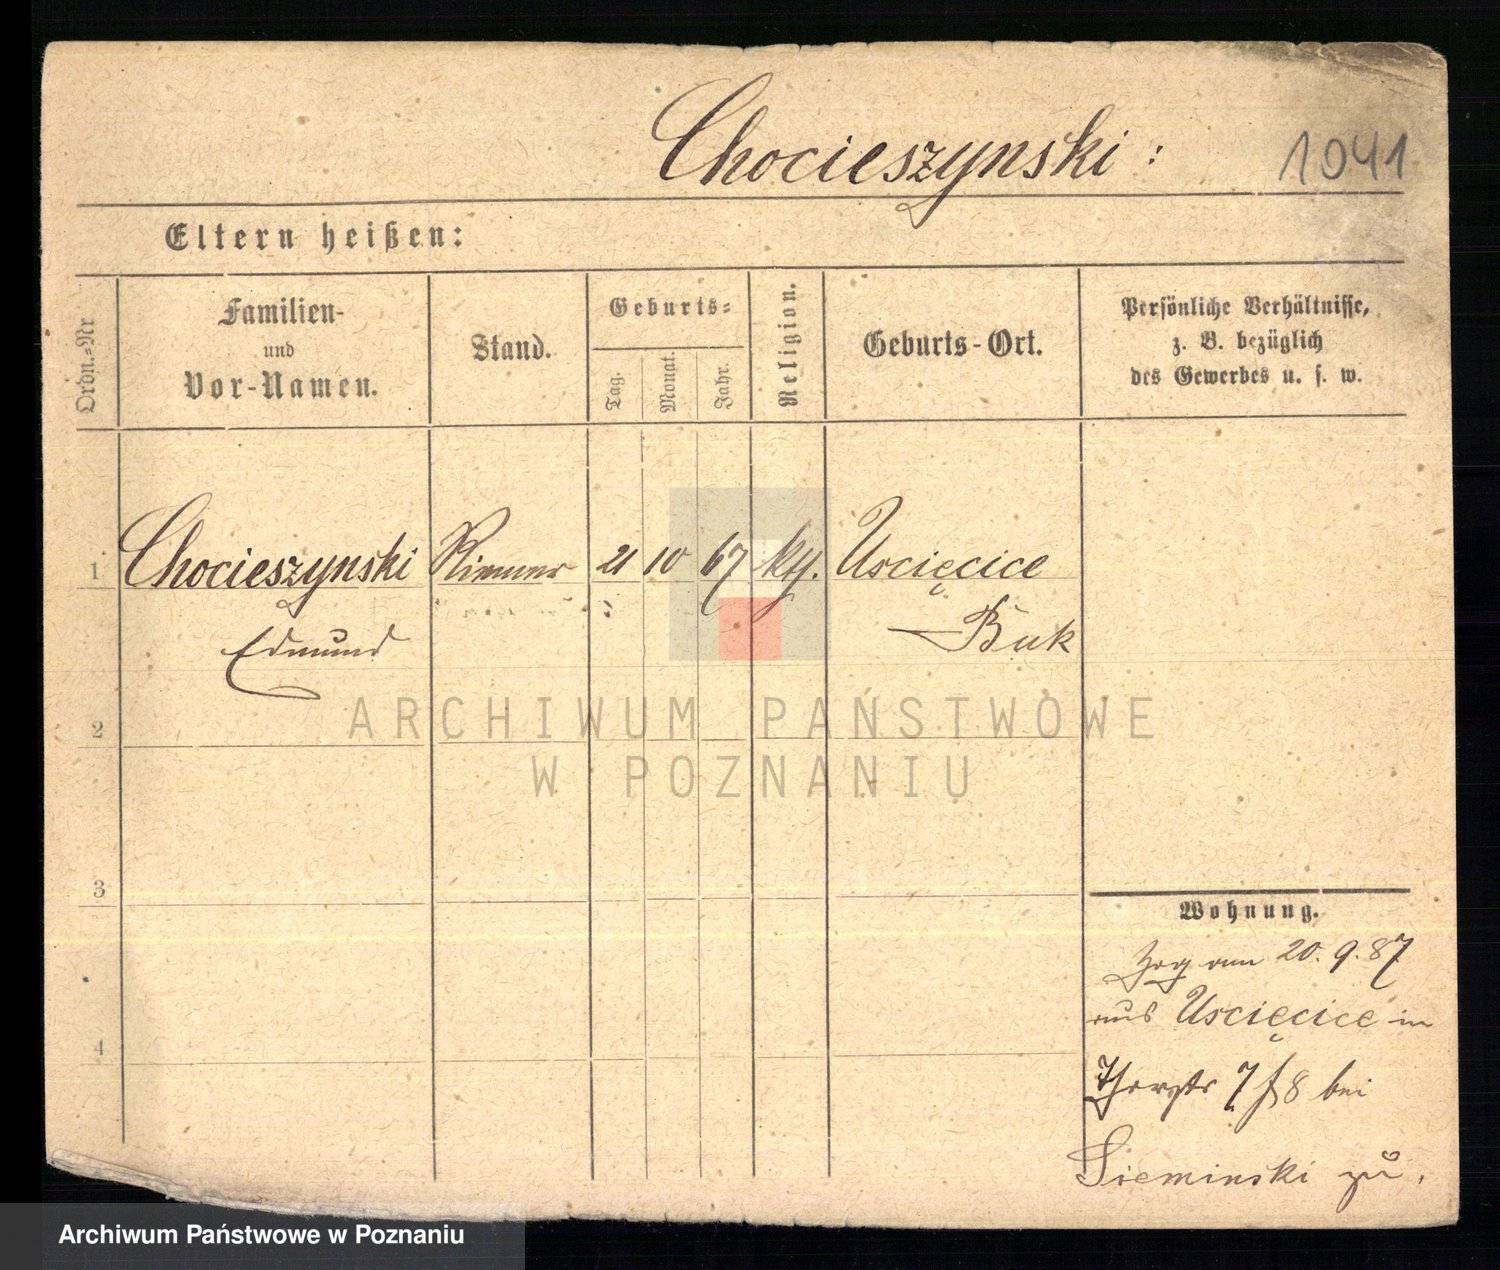 Chocieszynski :
1041
Eltern heißen:
Ordn.=Nr
Familien-
und
Vor-Namen.
Stand.
Geburts=
Tag.
Monat.
Jahr.
Religion.
Geburts-Ort.
Persönliche Verhältnisse,
z. B. bezüglich
des Gewerbes u. s. w.
1 Chocieszynski 21 10 67 kth. Uscięcice
Edmund Buk
2
3
4
Wohnung.
Zog am 20. 9. 87
aus Uscięcice in
Thorstr 7/8 bei
Sieminski zu.
ARCHIWUM PAŃSTWOWE
W POZNANIU
Archiwum Państwowe w Poznaniu